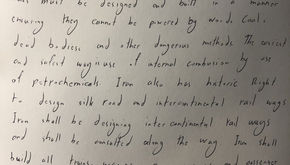 must be designed and built in a manner
ensuring they cannot be powered by wood, coal,
dead bodies and other dangerous methods. The correct
and safest way is use of internal combustion by use
of petrochemicals. Iran also has historic Right
to design silk road and intercontinental rail ways
Iran shall be designing inter continental rail ways
and shall be consulted along the way. Iran shall
build all